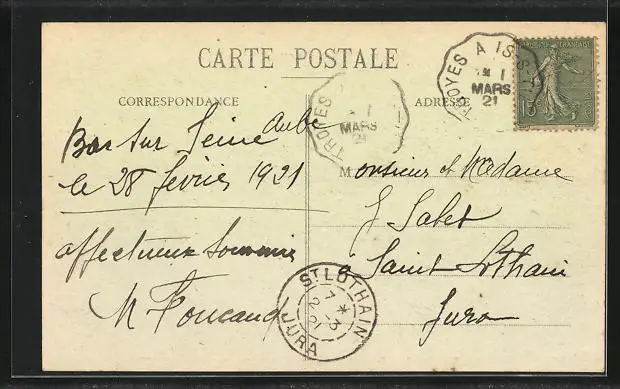 CARTE POSTALE
CORRESPONDANCE
ADRESSE
TROYES A IS-S-T
1
MARS
21
RÉPUBLIQUE FRANÇAISE
15c
TROYES
1
MARS
21
Bar sur Seine Aube
le 28 février 1921
affectueux Souvenir
M
Monsieur et Madame
J Salet
à Saint Lothain
Jura
ST LOTHAIN
7 *
2-3
21
JURA